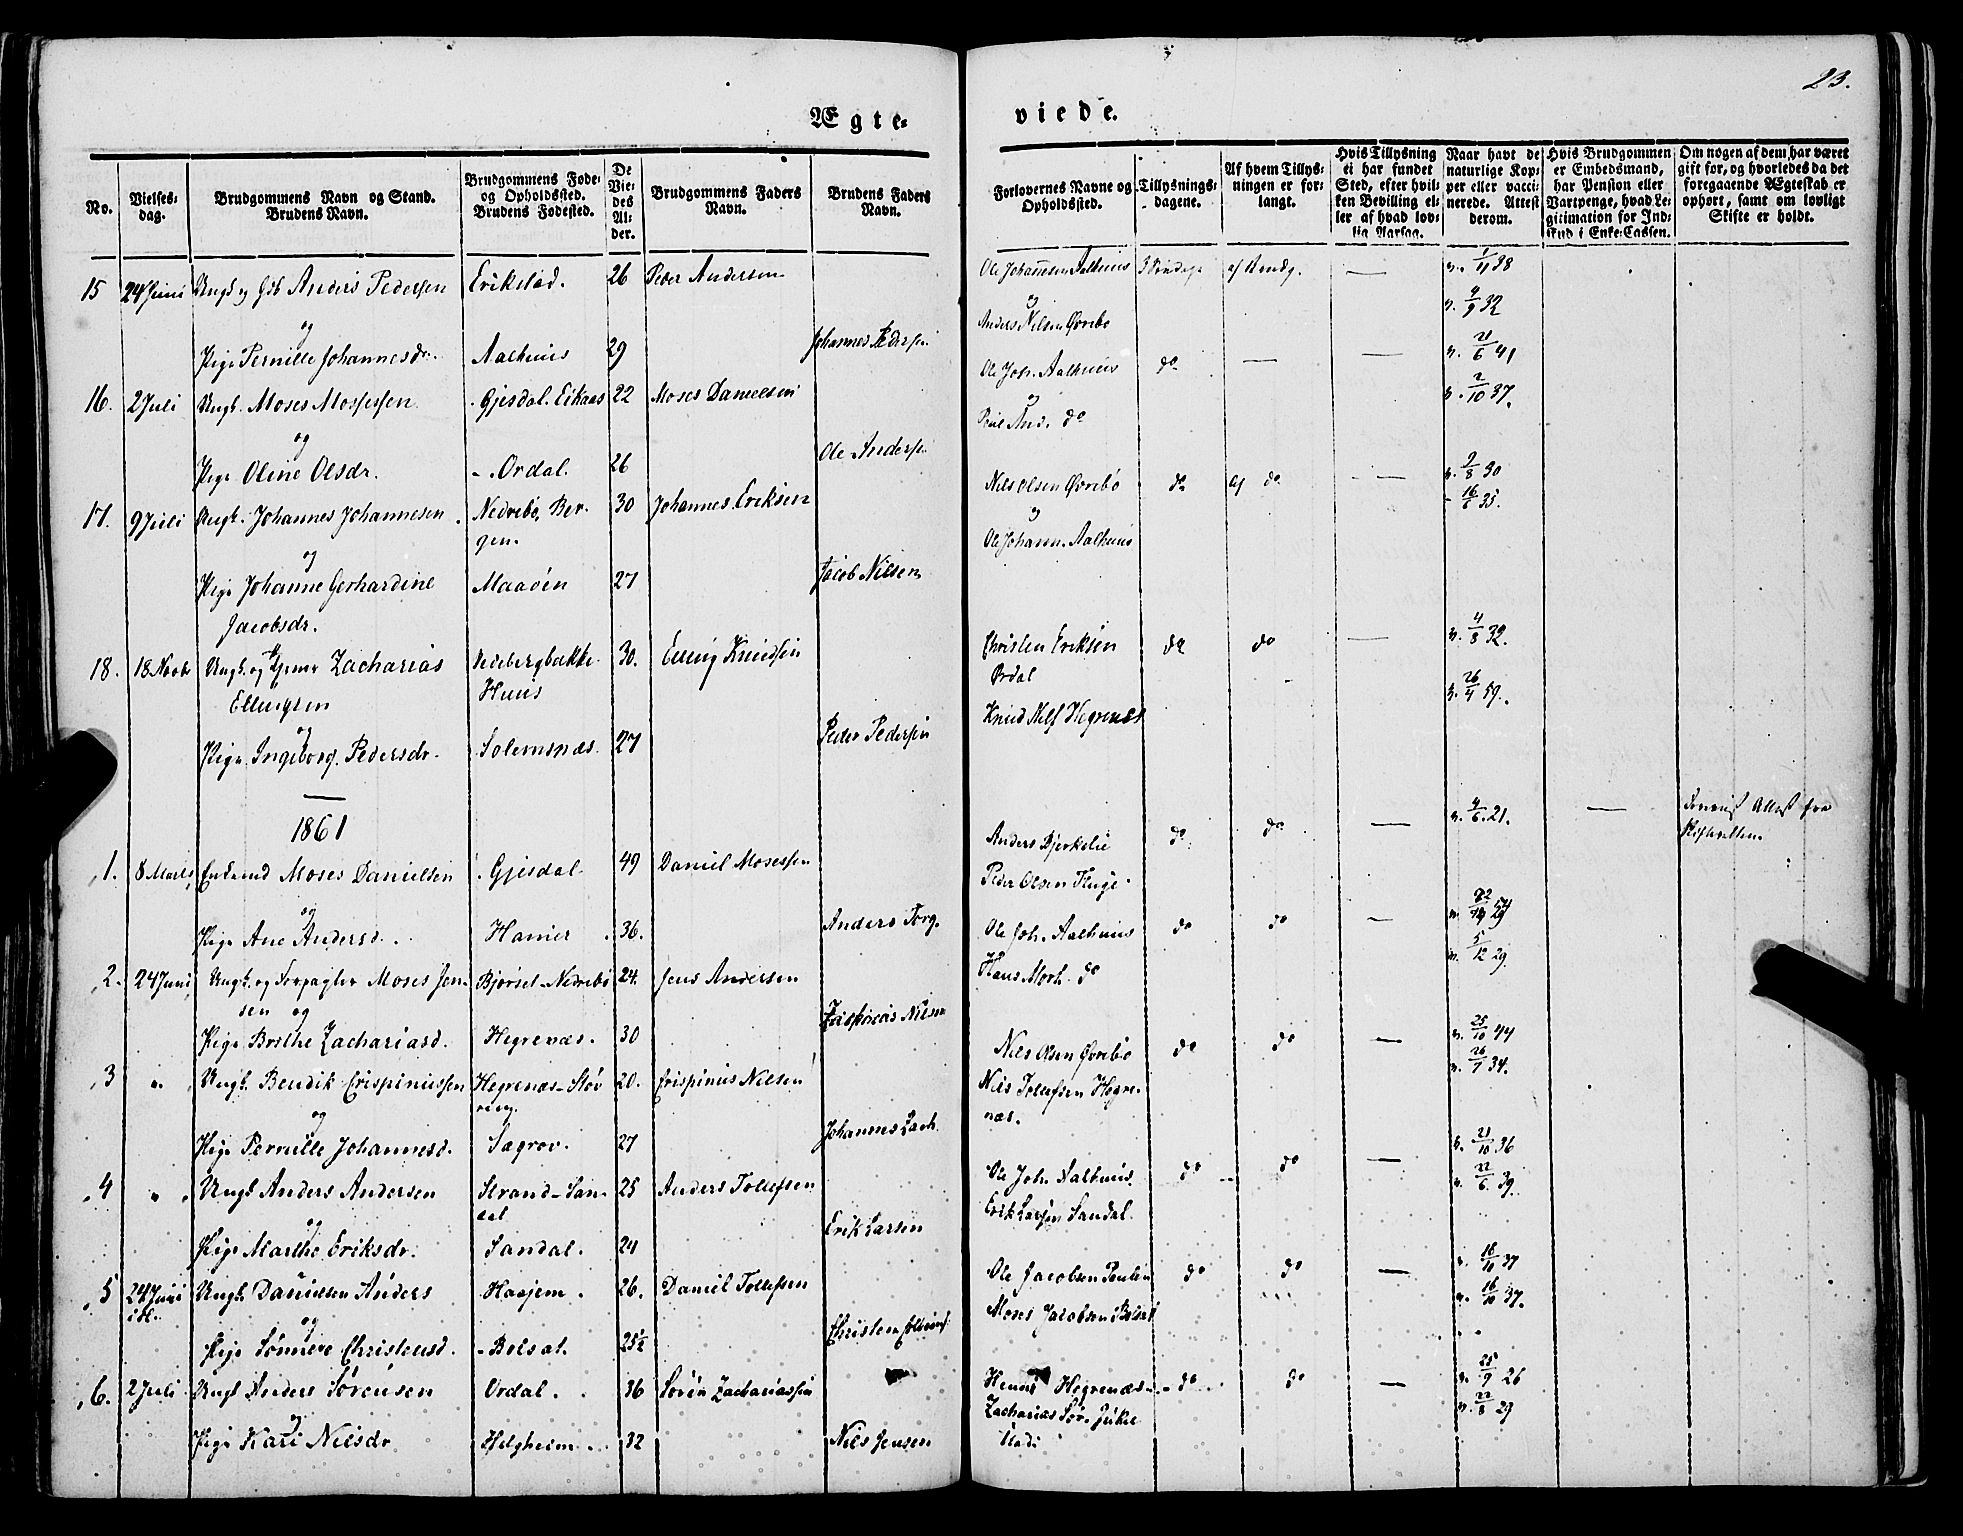 23.
Ægte= viede.
No.
Vielses-dag.
Brudgommens Navn og Stand. Brudens Navn.
Brudgommens Føde- og Opholdssted. Brudens Fødested.
De Vie-des Al-der.
Brudgommens Faders Navn.
Brudens Faders Navn.
Forlovernes Navne og Opholdssted.
Tillysnings-dagene.
Af hvem Tillys-ningen er for-langt.
Hvis Tillysning ei har fundet Sted, efter hvil-ken Bevilling el-ler af hvad lov-lig Aarsag.
Naar havt de naturlige Kop-per eller vacci-nerede. Attest derom.
Hvis Brudgommen er Embedsmand, har Pension eller Vartpenge, hvad Le-gitimation for Ind-skud i Enke-Cassen.
Om nogen af dem har været gift før, og hvorledes da det foregaaende Ægteskab er ophørt, samt om lovligt Skifte er holdt.
15 24 Juni Ungk. og Gdb Anders Pedersen Erikstad. 26 Peder Andersen Ole Johannesen Aalhuus 3 Søndage af Brudg. — v. 1/11 38
og
Anders Nilsen Øvrebø v. 4/9 32
Pige Pernille Johannesdr. Aalhuus 29 Johannes Pedersen
16. 2 Juli Ungk. Moses Mosessen. Gjesdal. Eikaas 22 Moses Danielsen Ole Joh. Aalhuus do — — v. 21/6 41
og
do v. 2/10 37.
Pige Oline Olsdr. - Ordal. 26 Ole Andersen
17. 9 Juli Ungk. Johannes Johannesen Nedrebø, Ber-gen. 30 Johannes Eriksen Nils Olsen Øvrebø do af do — v. 9/8 30
og
Ole Johann. Aalhuus - 16/6 35.
Pige Johanne Gerhardine Jacobsdr. Maaøen 27 Jacob Nilsen
18. 18 Novbr Ungk. og Zacharias Ellingsen Huus 30. Elling Knudsen Christen Eriksen Ordal do do — v. 4/8 32.
og
Knud Nils Hegrenæs v. 26/4 59.
Pige Ingeborg Pedersdr. Solemsnæs. 27 Peder Pedersen
1861
1. 8 Marts Enkemd Moses Danielsen Gjesdal 49 Daniel Mosessen Anders Bjerkelie do do — v. 4/6. 21. — Attest fra Skifteretten.
og
Peder Olsen Fluge
Pige Ane Andersd. Hamer 36. Anders Torg.
2. 24 Juni Ungk. og Forpagter Moses Jen-sen Bjørset-Nedrebø 24. Jens Andersen Ole Joh. Aalhuus do do —
og
Hans Mort. do v. 5/12 29.
Pige Brithe Zachariasd. Hegrenæs. 30 Zacharias Nilsen
3 " Ungk. Bendik Crispinussen Hegrenæs-Støv-ring 20. Crispinus Nilsen Nils Olsen Øvrebø do do — v. 25/10 44
og
Nils Tollefsen Hegre-næs. v. 26/7 34.
Pige Pernille Johannesd. Sægrov. 27 Johannes Zach.
4 " Ungk Anders Andersen Strand-San-dal 25 Anders Tollefsen Ole Joh. Aalhuus. do do — v. 21/10 36
og
Erik Larsen Sandal. v. 22/6. 39.
Pige Marthe Eriksdr. Sandal. 24 Erik Larsen
5 24 Juni Ungk. Danielsen Anders Haajem. 26. Daniel Tollefsen Ole Jacobsen do do — v. 16/11 37
og
Moses Jacobsen Bolset v. 16/10 37.
Pige Sønneve Christensd. - Bolsat. 25½ Christen
6. 2 Juli Ungk Anders Sørensen Ordal. 36 Søren Zachariassen Hegrenæs do do — v. 25/9 26
og
Zacharias Sør. v. 22/8 29
Pige Kari Nilsdr Helgheim 32 Nils Jensen